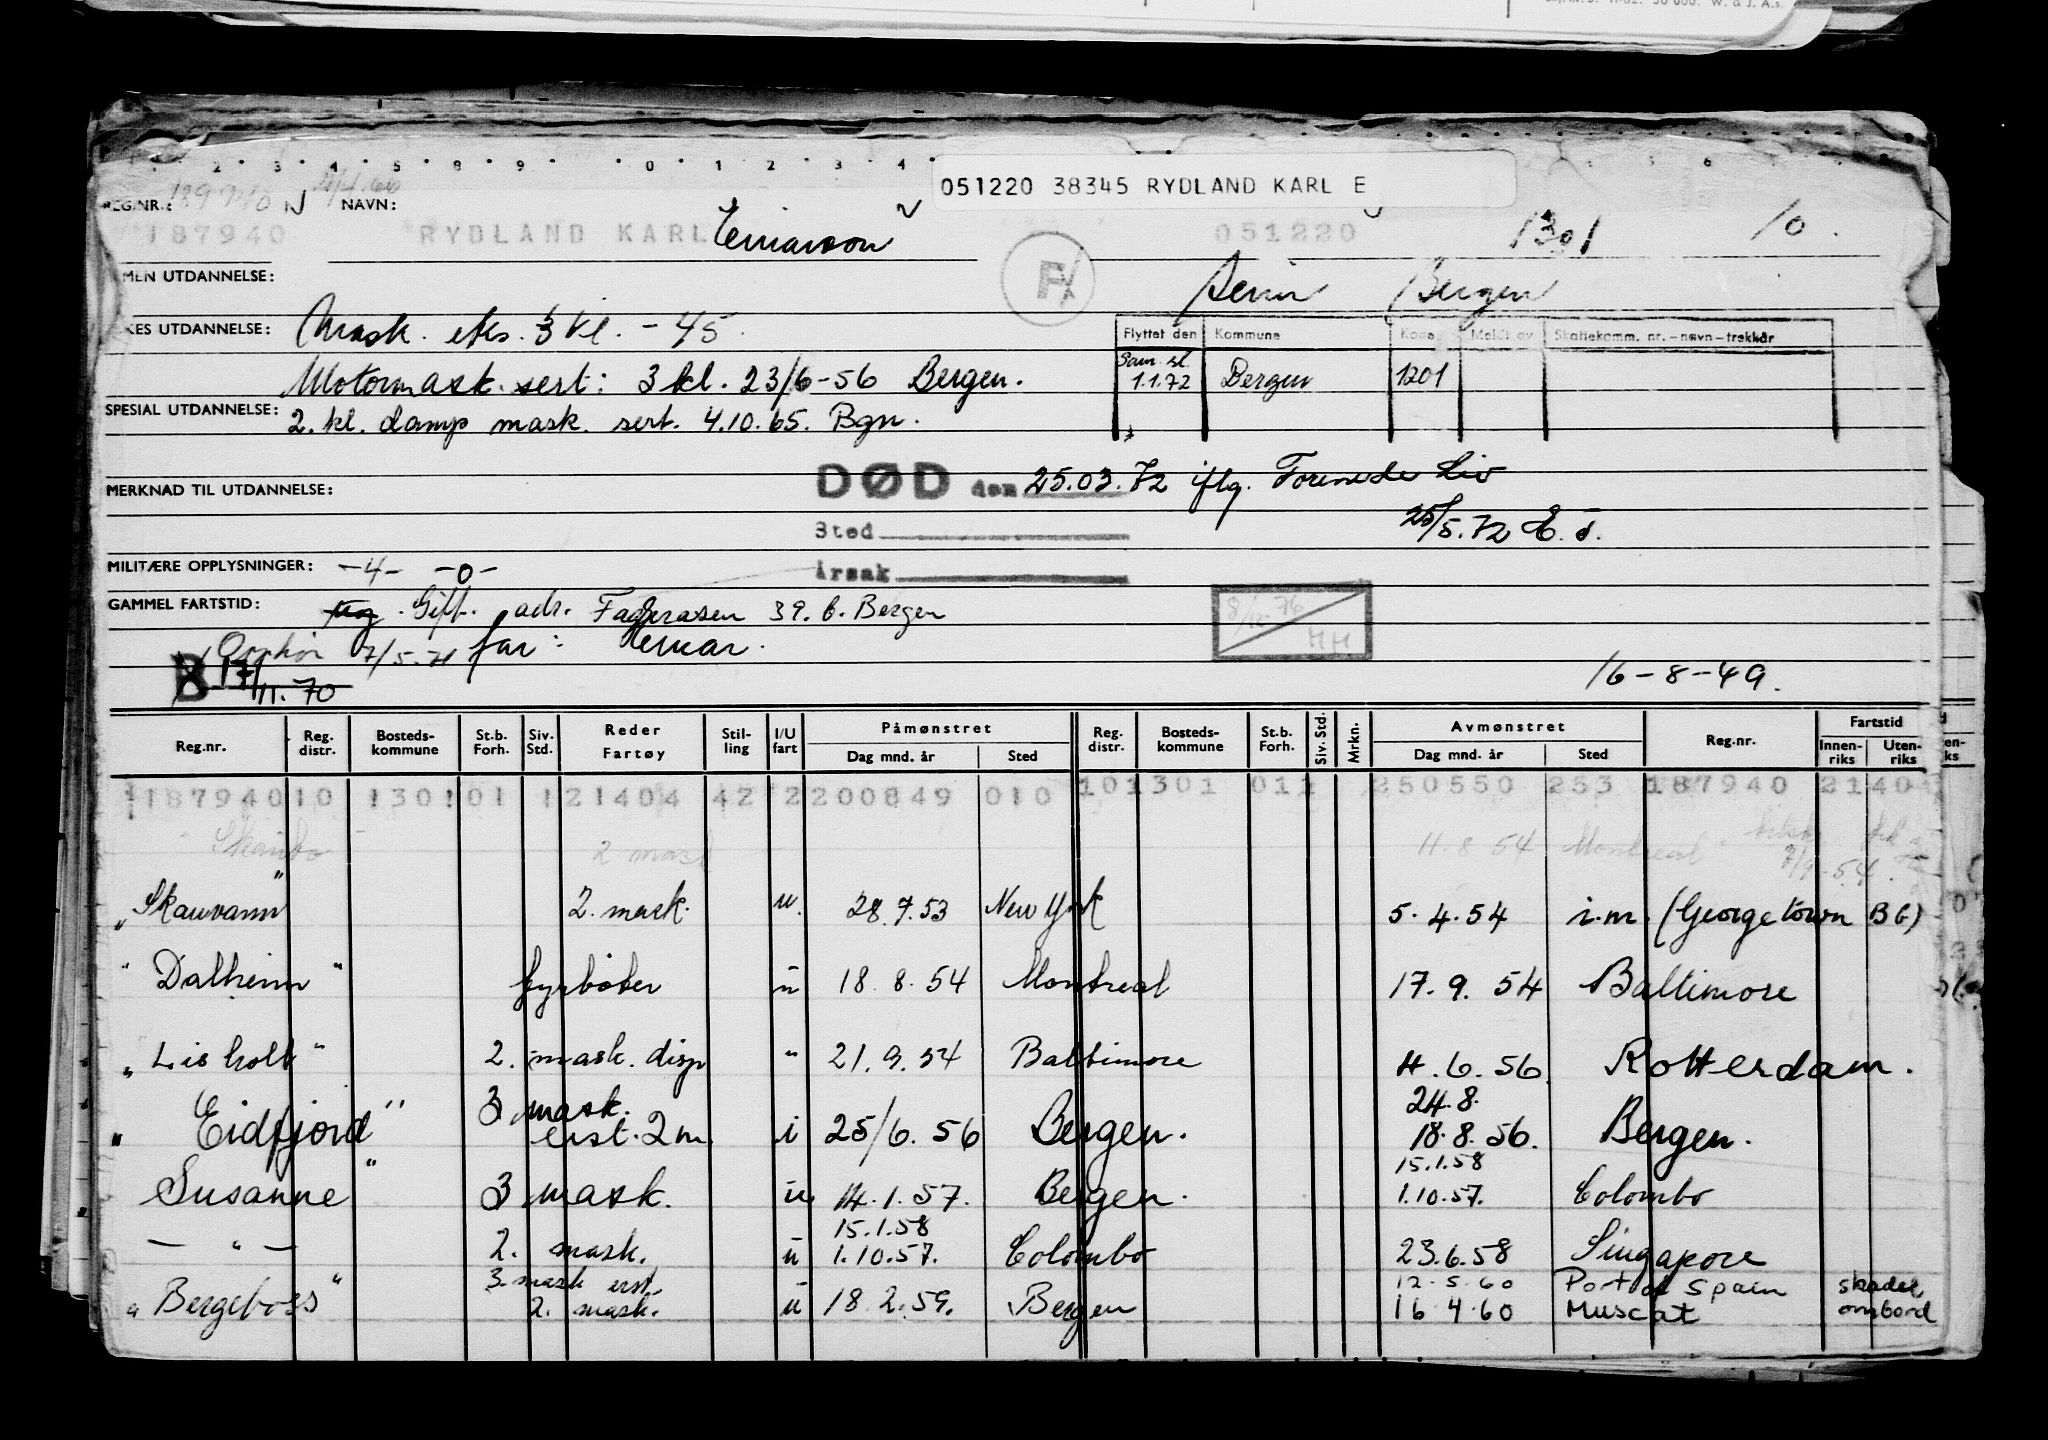 051220 38345 RYDLAND KARL E
REG.NR.: 187940
NAVN: RYDLAND KARL Einarson 051220 1301 10.
MEN UTDANNELSE: Bergen
KES UTDANNELSE: Mask. eks. 3 kl. - 45.
Flyttet den Kommune Meldt av Skattekomm. nr.-navn-trekkår
Motormask. sert: 3 kl. 23/6-56 Bergen.
Sam. sl. 1.1.72 Bergen 1201
SPESIAL UTDANNELSE: 2. kl. damp mask. sert. 4.10.65. Bgn.
MERKNAD TIL UTDANNELSE: DØD den 25.03.72 iflg. Forenede Liv
Sted 25/5.72
MILITÆRE OPPLYSNINGER: -4- -0- Årsak
GAMMEL FARTSTID: ug. Gift. adr. Fageråsen 39. b. Bergen
8/12.76 HH
Opphør 7/5.71 far: Einar.
B 17/11.70
16-8-49.
Reg.nr. Reg. distr. Bosteds-kommune St.b. Forh. Siv. Std. Reder Fartøy Stil-ling I/U fart Påmønstret Dag mnd. år Sted Reg. distr. Bosteds-kommune St.b. Forh. Siv. Std. Mrkn. Avmønstret Dag mnd. år Sted Reg.nr. Fartstid Innen-riks Uten-riks
187940 10 1301 01 1 21404 42 2 200849 010 10 1301 011 250550 253 187940 2140
2 mask 11.8.54 Montreal
"Skauvann" 2. mask. u. 28.7.53 New York 5.4.54 i.m. (Georgetown BG)
"Dalheim" fyrbøter u 18.8.54 Montreal 17.9.54 Baltimore
"Lisholt" 2. mask. disp " 21.9.54 Baltimore 4.6.56 Rotterdam.
3 mask. 24.8.
"Eidfjord" erst. 2 m i 25/6.56 Bergen. 18.8.56. Bergen.
15.1.58
Susanne" 3 mask. u 14.1.57. Bergen. 1.10.57. Colombo
15.1.58
— " — 2. mask. u 1.10.57. Colombo 23.6.58 Singapore
3. mask erst. 12.5.60 Port of Spain skadet
"Bergeboss" 2. mask. u 18.2.59. Bergen 16.4.60 Muscat ombord